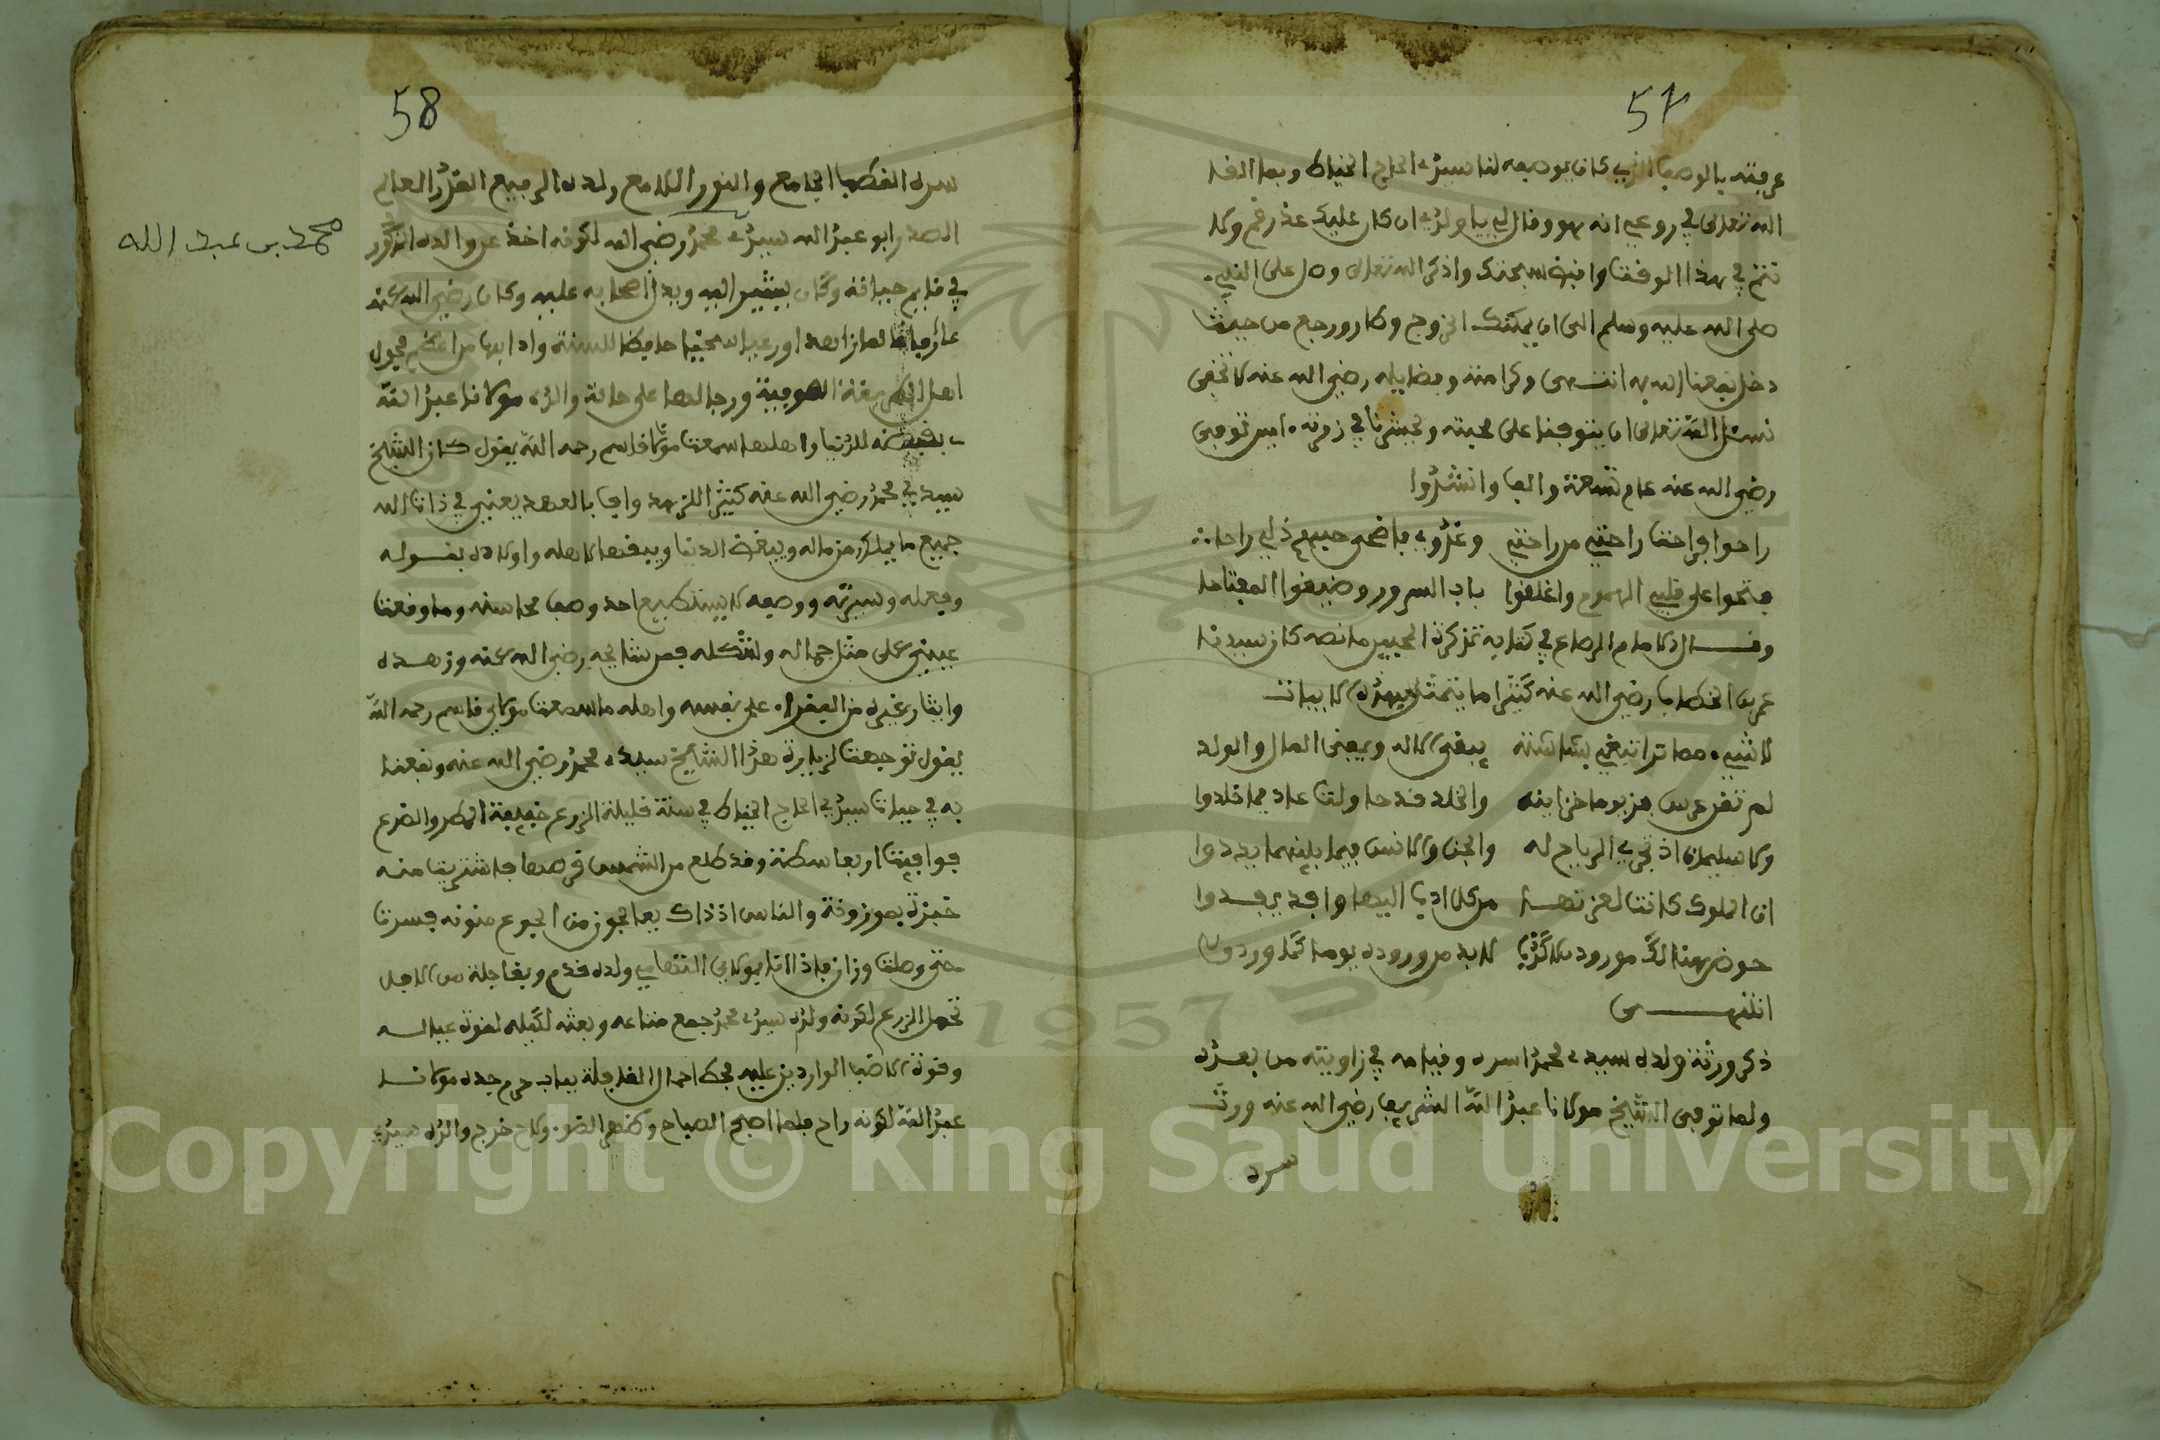 57
عرفته بالوصف الذي كان يوصفه لنا سيدي الحاج الخياط وبما القا
الله تعالى في روعي انه هو وقال لي يا ولدي ان كان عليك عذر فم ولا
تنم في هذا الوقت واقبض سبحتك واذكر الله تعالى وصل على النبي
صلى الله عليه وسلم الى ان يمكنك الخروج وكار ورجع من حيث
دخل نفعنا الله به انتهى وكرامته وفضايله رضي الله عنه لا تخفى
نسئل الله تعالى ان يتوفنا على محبته ويحشرنا في زمرته امين توفي
رضي الله عنه عام تسعة والف وانشدوا
راحوا فراحت راحتي من راحتي وغدوا فاضحى حبهم لي راحا
فتحوا على قلبي الهموم واغلقوا باب السرور وضيعوا المفتاحا
وقال الامام الرصاع في كتابه تذكرة المحبين ما نصه كان سيدنا
عمر بن الخطاب رضي الله عنه كثيرا ما يتمثل بهذه الابيات
لا شيء مما ترا تبقى بشاشته يبقى الاله ويفنى المال والولد
لم تغن عن هرمز يوما خزاينه والخلد قد حاولت عاد فما خلدوا
ولا سليمان اذ تجري الرياح له والجن والانس فيما بينهما بددوا
ان الملوك كانت لعزتها من كل ادب اليها وافد يفدوا
حوض هنالك مورود بلا كذب لا بد من وروده يوما كما وردوا
انتهى
ذكر ورثة ولده سيدي محمد اسره وقيامه في زاويته من بعده
ولما توفي الشيخ مولانا عبد الله الشريف رضي الله عنه ورث
سره
58
سره القطب الجامع والنور اللامع ولده الرفيع القدر العالم
الصدر ابو عبد الله سيدي محمد رضي الله لكونه اخذ عن والده المذكور
محمد بن عبد الله
في قايم حياته وكان يشير اليه ويدل اصحابه عليه وكان رضي الله عنه
عارفا عالما زاهدا ورعا سخيا حافظا للسنة وادابها من اعظم فحول
اهل الطريقة الصوفية ورجالها على حالة والده مولانا عبد الله
بغضه للدنيا واهلها سمعت مولاي قاسم رحمه الله يقول كان الشيخ
سيدي محمد رضي الله عنه كثير الزهد وافيا بالعهد يعني في ذات الله
جميع ما يملك من ماله ويبغض الدنيا ويبغضها لاهله واولاده بقوله
وفعله وسيرته ووصفه لا يستطيع احد وصف محاسنه وما وقعت
عيني على مثل جماله ولا شكله فمن شانه رضي الله عنه وزهده
وايثار غيره من الفقراء على نفسه واهله ما سمعت مولاي قاسم رحمه الله
يقول توجهت لزيارة هذا الشيخ سيدي محمد رضي الله عنه ونفعنا
به في حيات سيدي الحاج الخياط في سنة قليلة الزرع خفيفة المطر والضرع
فوافيت اربعا سكنة وقد طلع من الشمس قرصها فاشتريت منه
خبزة بموزونة والناس اذ ذاك يعالجون من الجوع منونه فسرت
حتى وصلت وزان فاذا انا بمولاي التهامي ولده قدم وبقافلة من الابل
تحمل الزرع لكونه ولده سيدي محمد جمع متاعه وبعثه لكيله لقوت عياله
وقوت الاضياف الواردين عليه فحط احمال القافلة بباب حرم جده مولانا
عبد الله لكونه راح فلما اصبح الصباح وظهر الضوء ولاح خرج والده سيدي
Copyright © King Saud University
1957